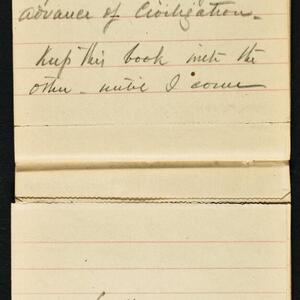 advance of Civilization.
Keep this book with the
other - until I come